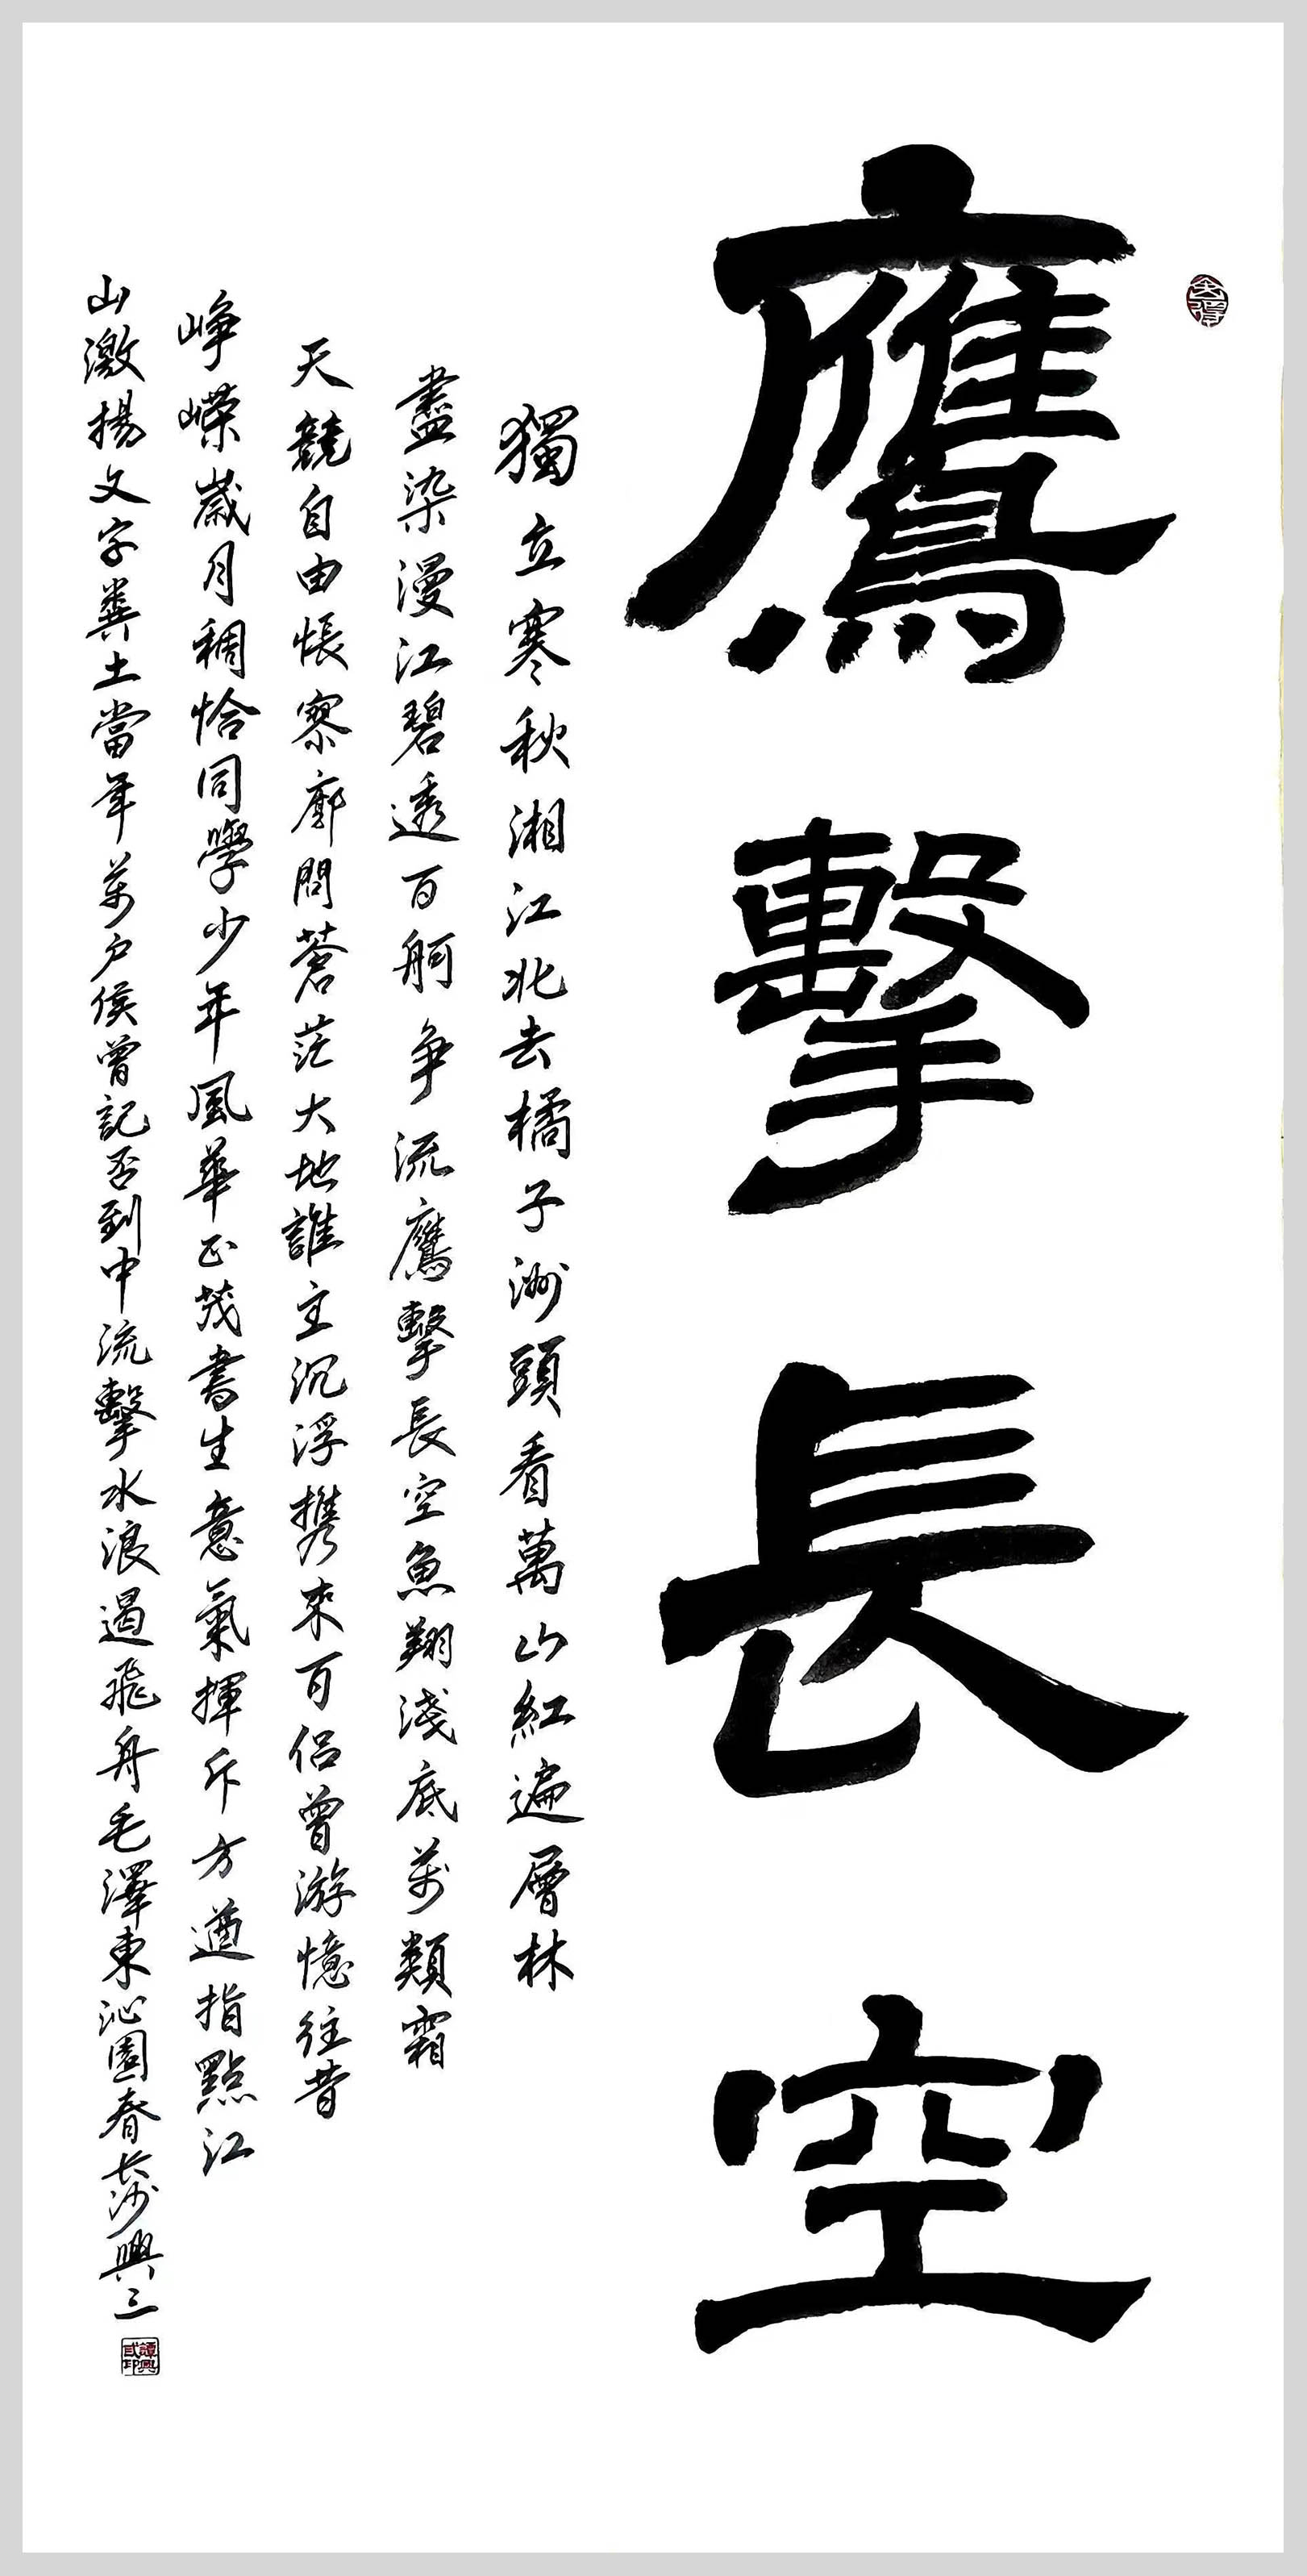 鷹擊長空
獨立寒秋湘江北去橘子洲頭看萬山紅遍層林
盡染漫江碧透百舸争流鷹擊長空魚翔淺底萬類霜
天競自由悵寥廓問蒼茫大地誰主沉浮携來百侣曾游憶往昔
崢嶸歲月稠恰同學少年風華正茂書生意氣揮斥方遒指點江
山激揚文字糞土當年萬户侯曾記否到中流擊水浪遏飛舟毛澤東沁園春长沙興三